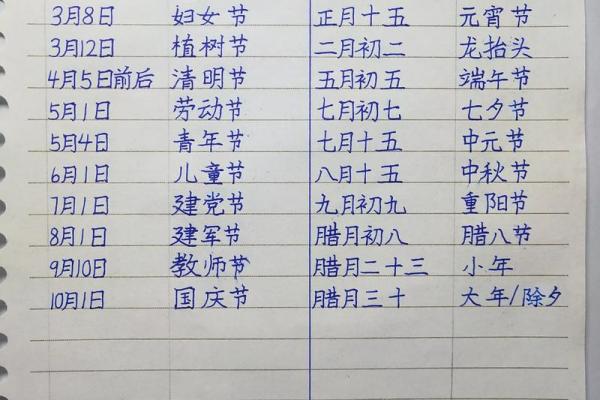 3月8日 妇女节 正月十五 元宵节
3月12日 植树节 二月初二 龙抬头
4月5日前后 清明节 五月初五 端午节
5月1日 劳动节 七月初七 七夕节
5月4日 青年节 七月十五 中元节
6月1日 儿童节 八月十五 中秋节
7月1日 建党节 九月初九 重阳节
8月1日 建军节 腊月初八 腊八节
9月10日 教师节 腊月二十三 小年
10月1日 国庆节 腊月三十 大年/除夕